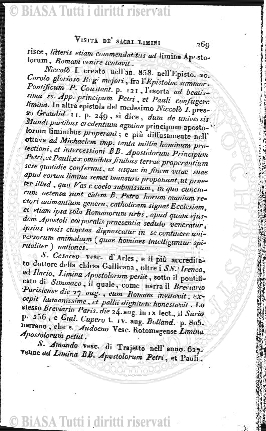 VISITA DE' SACRI LIMINI 269
risce, litteris etiam commendatitiis ad limina Aposto-
lorum, Romani venire contavit.
Niccolò I. creato nell'an. 858. nell'Episto. 20.
Carolo glorioso Regi majori, fra l'Epistolae summor.
Pontificum P. Constant. p. 121, l'esorta ad beatis-
sima ss. App. principum Petri, et Pauli confugere
limina. In altra epistola del medesimo Niccolò I. pres-
so Gratidid 11. p. 249, si dice, dum de universis
Mundi partibus credentium agmina principum aposto-
lorum liminibus properant; e più diffusamente nell'
ottave ad Michaelem imp. tanta millia hominum pro-
tectioni, et intercessioni BB. Apostolorum Principum
Petri, et Pauli, ex omnibus finibus terrae properantium
sese quotidie conferunt, et usque in finem vitae suae
apud eorum limina semet mansura proponunt, ut prae-
ter illud, quod Vas e coelo submissum, in quo omnium
cum ostensa sunt eidem B. Petro horum munium re-
ctori animantium genera, catholicam signet Ecclesiam,
et etiam ipsa sola Romanorum urbs, apud quam ejus-
dem Apostoli corporalis praesentia sedulo veneratur,
ipsius vasis cunctas dignoscatur in se continere uni-
versorum animalium (quae homines intelliguntur spi-
ritaliter) nationes.
S. Cesareo vesc. d'Arles, e il più accredita-
to dottore della chiesa Gallicana, oltre i SS. Ireneo,
ed Ilario, Limina Apostolorum petiit, sotto il pontifi-
cato di Simmaco, il quale, come narra il Breviario
Parisiense die 27. aug., eum Romam invitavit, ex-
cepit humanissime, et pallii dignitate honestavit. Lo
stesso Breviario Paris. die 24. aug. in ix lect., il Surio
p. 256, e Guil. Cupero t. iv. aug. Bolland. p. 806.
narrano, che s. Audoeno Vesc. Rotomagense Limina
Apostolorum petiit.
S. Amando vesc. di Trajetto nell'anno. 627.
venne ad Limina BB. Apostolorum Petri, et Pauli.